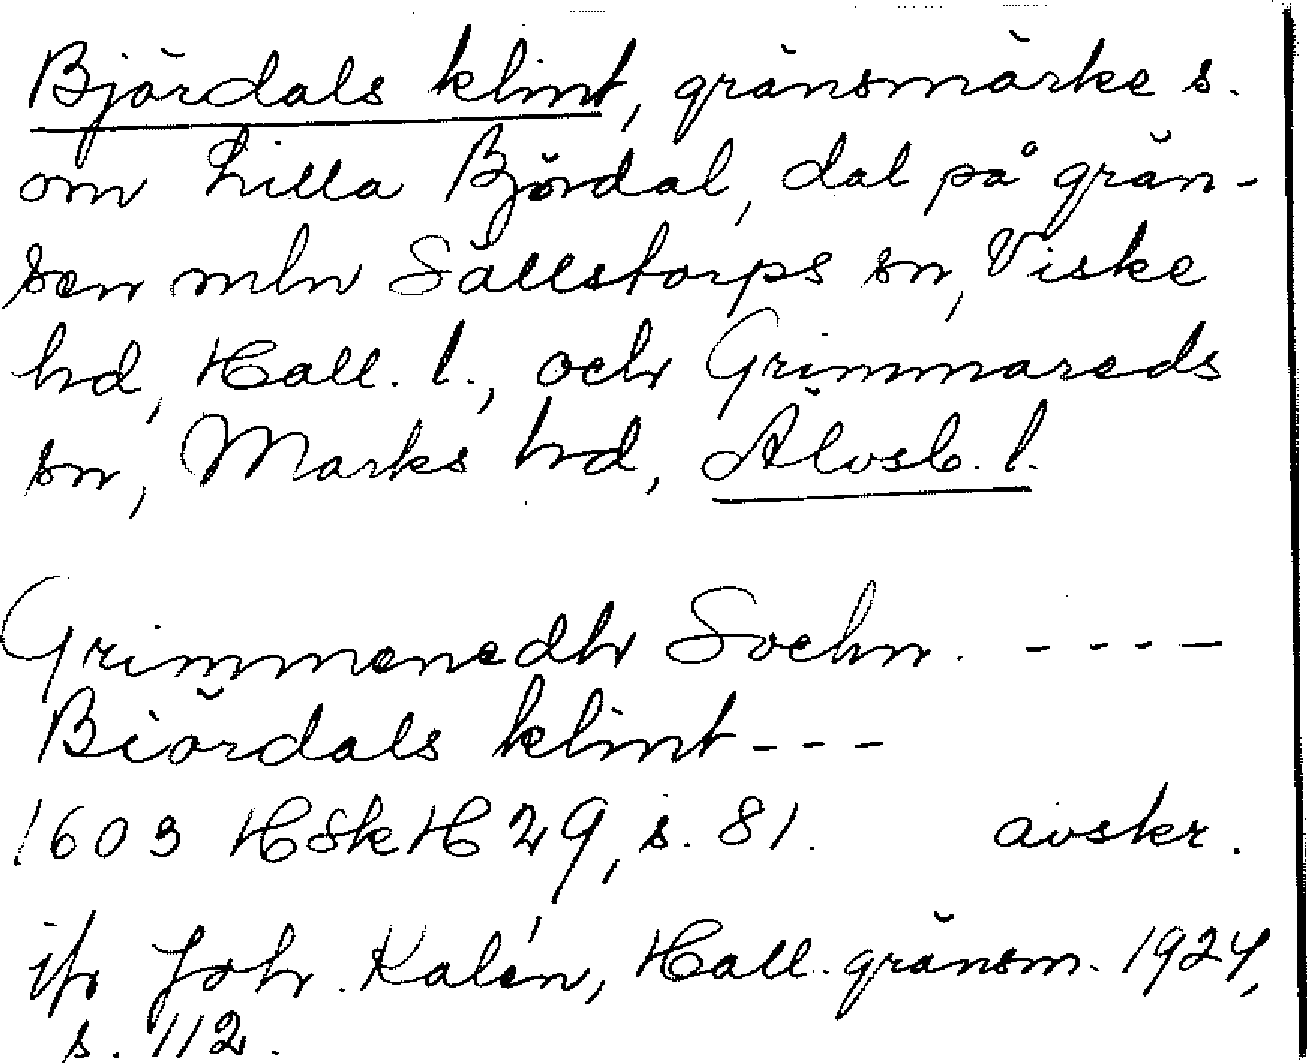 Björdals klint, gränsmärke s.
om Lilla Björdal, dal på grän-
sen mln Sällstorps sn, Viske
hd, Hall. l., och Grimmareds
sn, Marks hd, Älvsb. l.
Grimmenedh Sochn. ----
Biördals klint ---
1603 HSkH 29, s. 81. avskr.
jfr Joh. Kalén, Hall. gränsm. 1924,
s. 112.